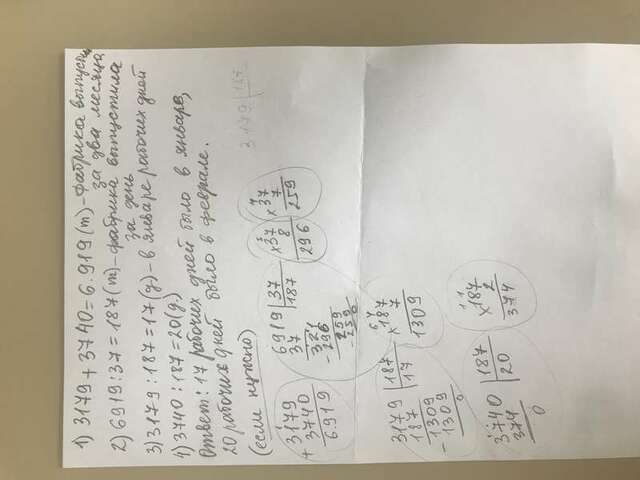 1) 3179 + 3740 = 6.919 (т) - фабрика выпустила
за два месяца
2) 6919 : 37 = 187 (т) - фабрика выпустила
за день
3) 3179 : 187 = 17 (д) - в январе рабочих дней
4) 3740 : 187 = 20 (д.)
Ответ: 17 рабочих дней было в январе,
20 рабочих дней было в феврале.
3179 187
(если нужно)
+ 3179
3740
6.919
6919 37
37 187
321
- 296
259
- 259
0
5
× 37
8
296
4
× 37
7
259
3179 187
187 17
- 1309
1309
0
6 4
× 187
7
1309
3740 187
374 20
0
1 1
× 187
2
374